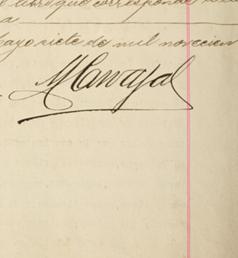 libro que corresponde
a
Mayo siete de mil novecien
MCarvajal